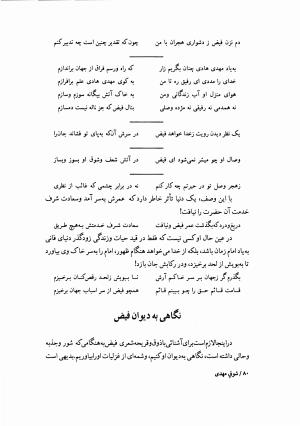 دم نزن فیض ز دشواری هجران با من چون که تقدیر چنین است چه تدبیر کنم
به یاد مهدی هادی چنان بگریم زار که راه ورسم فراق از جهان براندازم
خدای را مددی ای رفیق ره تا من به کوی مهدی هادی علم برافرازم
هوای منزل او آب زندگانی ومن به خاک آتش بیگانه سوزم وسازم
نه همدمی نه رفیقی نه مژده وصلی بنال فیض که جز ناله نیست دمسازم
یک نظر دیدن رویت زخدا خواهد فیض در سرش آنکه به پای تو فشاند جان را
وصال او چو میسّر نمی شود ای فیض در آتش شعف وشوق او بسوز وبساز
زهجر وصل تو در حیرتم چه کار کنم نه در برابر چشمی که غائب از نظری
با این وصف، یک دنیا تأثر خاطر دارد که عمرش به سر آمد وسعادت شرف
خدمت آن حضرت را نیافت!
دریغ ودرد که بگذشت عمر فیض ونیافت سعادت شرف خدمتش به هیچ طریق
در عین حال او کسی نیست که فقط در قید حیات وزندگی زودگذر دنیای فانی
به یاد امام زمان باشد، بلکه از خدا می خواهد هنگام ظهور، امام را به سر خاک وی بیاورد
تا به بویش از لحد برخیزد، ودر رکابش جان بازد!
بگذر گر زجهان بر سر خاکم آرش تا بویش زلحد رقص کنان برخیزم
قامت قائم حق را چو ببینم قائم همچو فیض از سر اسباب جهان برخیزم
نگاهی به دیوان فیض
در اینجا لازم است برای آشنائی با ذوق وقریحه شعری فیض به هنگامی که شور وجذبه
وحالی داشته است، نگاهی به دیوان او کنیم، وشمه ای از غزلیات او را بیاوریم. بدیهی است
۸۰ / شوق مهدی